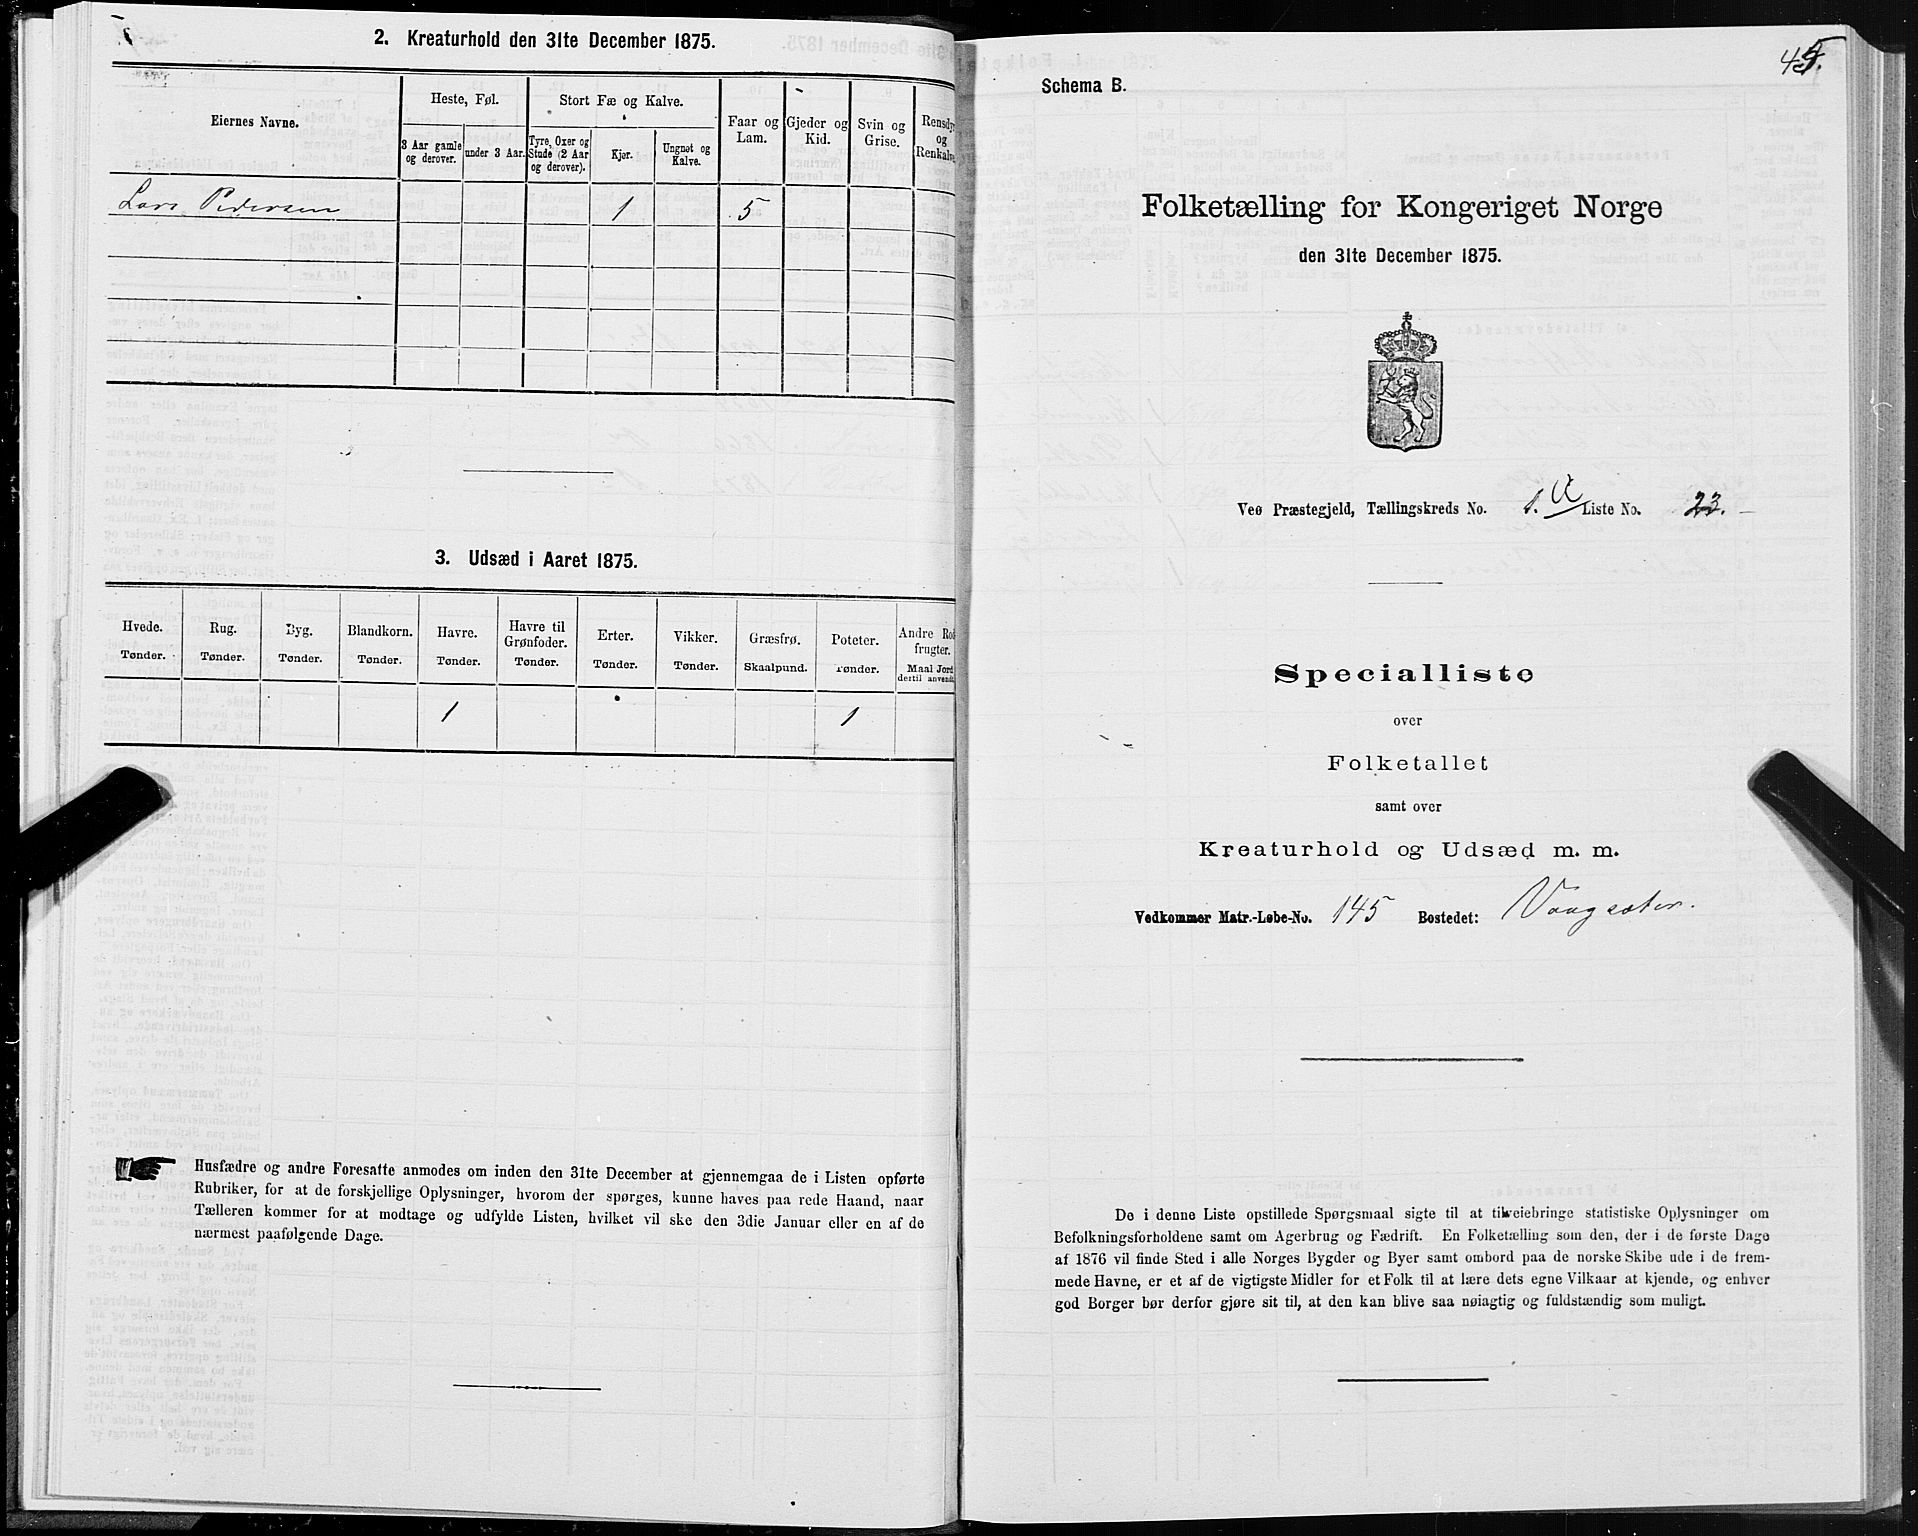 2. Kreaturhold den 31te December 1875.
Eiernes Navne.
Heste, Føl.
Stort Fæ og Kalve.
Faar og Lam.
Gjeder og Kid.
Svin og Grise.
Rensdyr og Renkalve
3 Aar gamle og derover.
under 3 Aar.
Tyre, Oxer og Stude (2 Aar og derover).
Kjør.
Ungnøt og Kalve.
Lars Pedersen 1 5
3. Udsæd i Aaret 1875.
Hvede. Rug. Byg. Blandkorn. Havre. Havre til Grønfoder. Erter. Vikker. Græsfrø. Poteter. Andre Rod-frugter.
Tønder. Tønder. Tønder. Tønder. Tønder. Tønder. Tønder. Tønder. Skaalpund. Tønder. Maal Jord dertil anvendt.
1 1
Husfædre og andre Foresatte anmodes om inden den 31te December at gjennemgaa de i Listen opførte
Rubriker, for at de forskjellige Oplysninger, hvorom der spørges, kunne haves paa rede Haand, naar
Tælleren kommer for at modtage og udfylde Listen, hvilket vil ske den 3die Januar eller en af de
nærmest paafølgende Dage.
45.
Schema B.
Folketælling for Kongeriget Norge
den 31te December 1875.
Veø Præstegjeld, Tællingskreds No. 1. a Liste No. 23.
Specialliste
over
Folketallet
samt over
Kreaturhold og Udsæd m. m.
Vedkommer Matr.-Løbe-No. 145 Bostedet: Vaagsæter.
De i denne Liste opstillede Spørgsmaal sigte til at tilveiebringe statistiske Oplysninger om
Befolkningsforholdene samt om Agerbrug og Fædrift. En Folketælling som den, der i de første Dage
af 1876 vil finde Sted i alle Norges Bygder og Byer samt ombord paa de norske Skibe ude i de frem-
mede Havne, er et af de vigtigste Midler for et Folk til at lære dets egne Vilkaar at kjende, og enhver
god Borger bør derfor gjøre sit til, at den kan blive saa nøiagtig og fuldstændig som muligt.